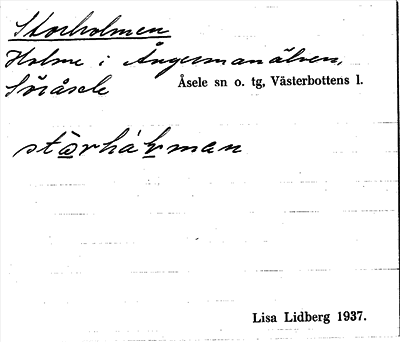 Storholmen
Holme i Ångermanälven,
Söråsele
Åsele sn o. tg, Västerbottens l.
Lisa Lidberg 1937.